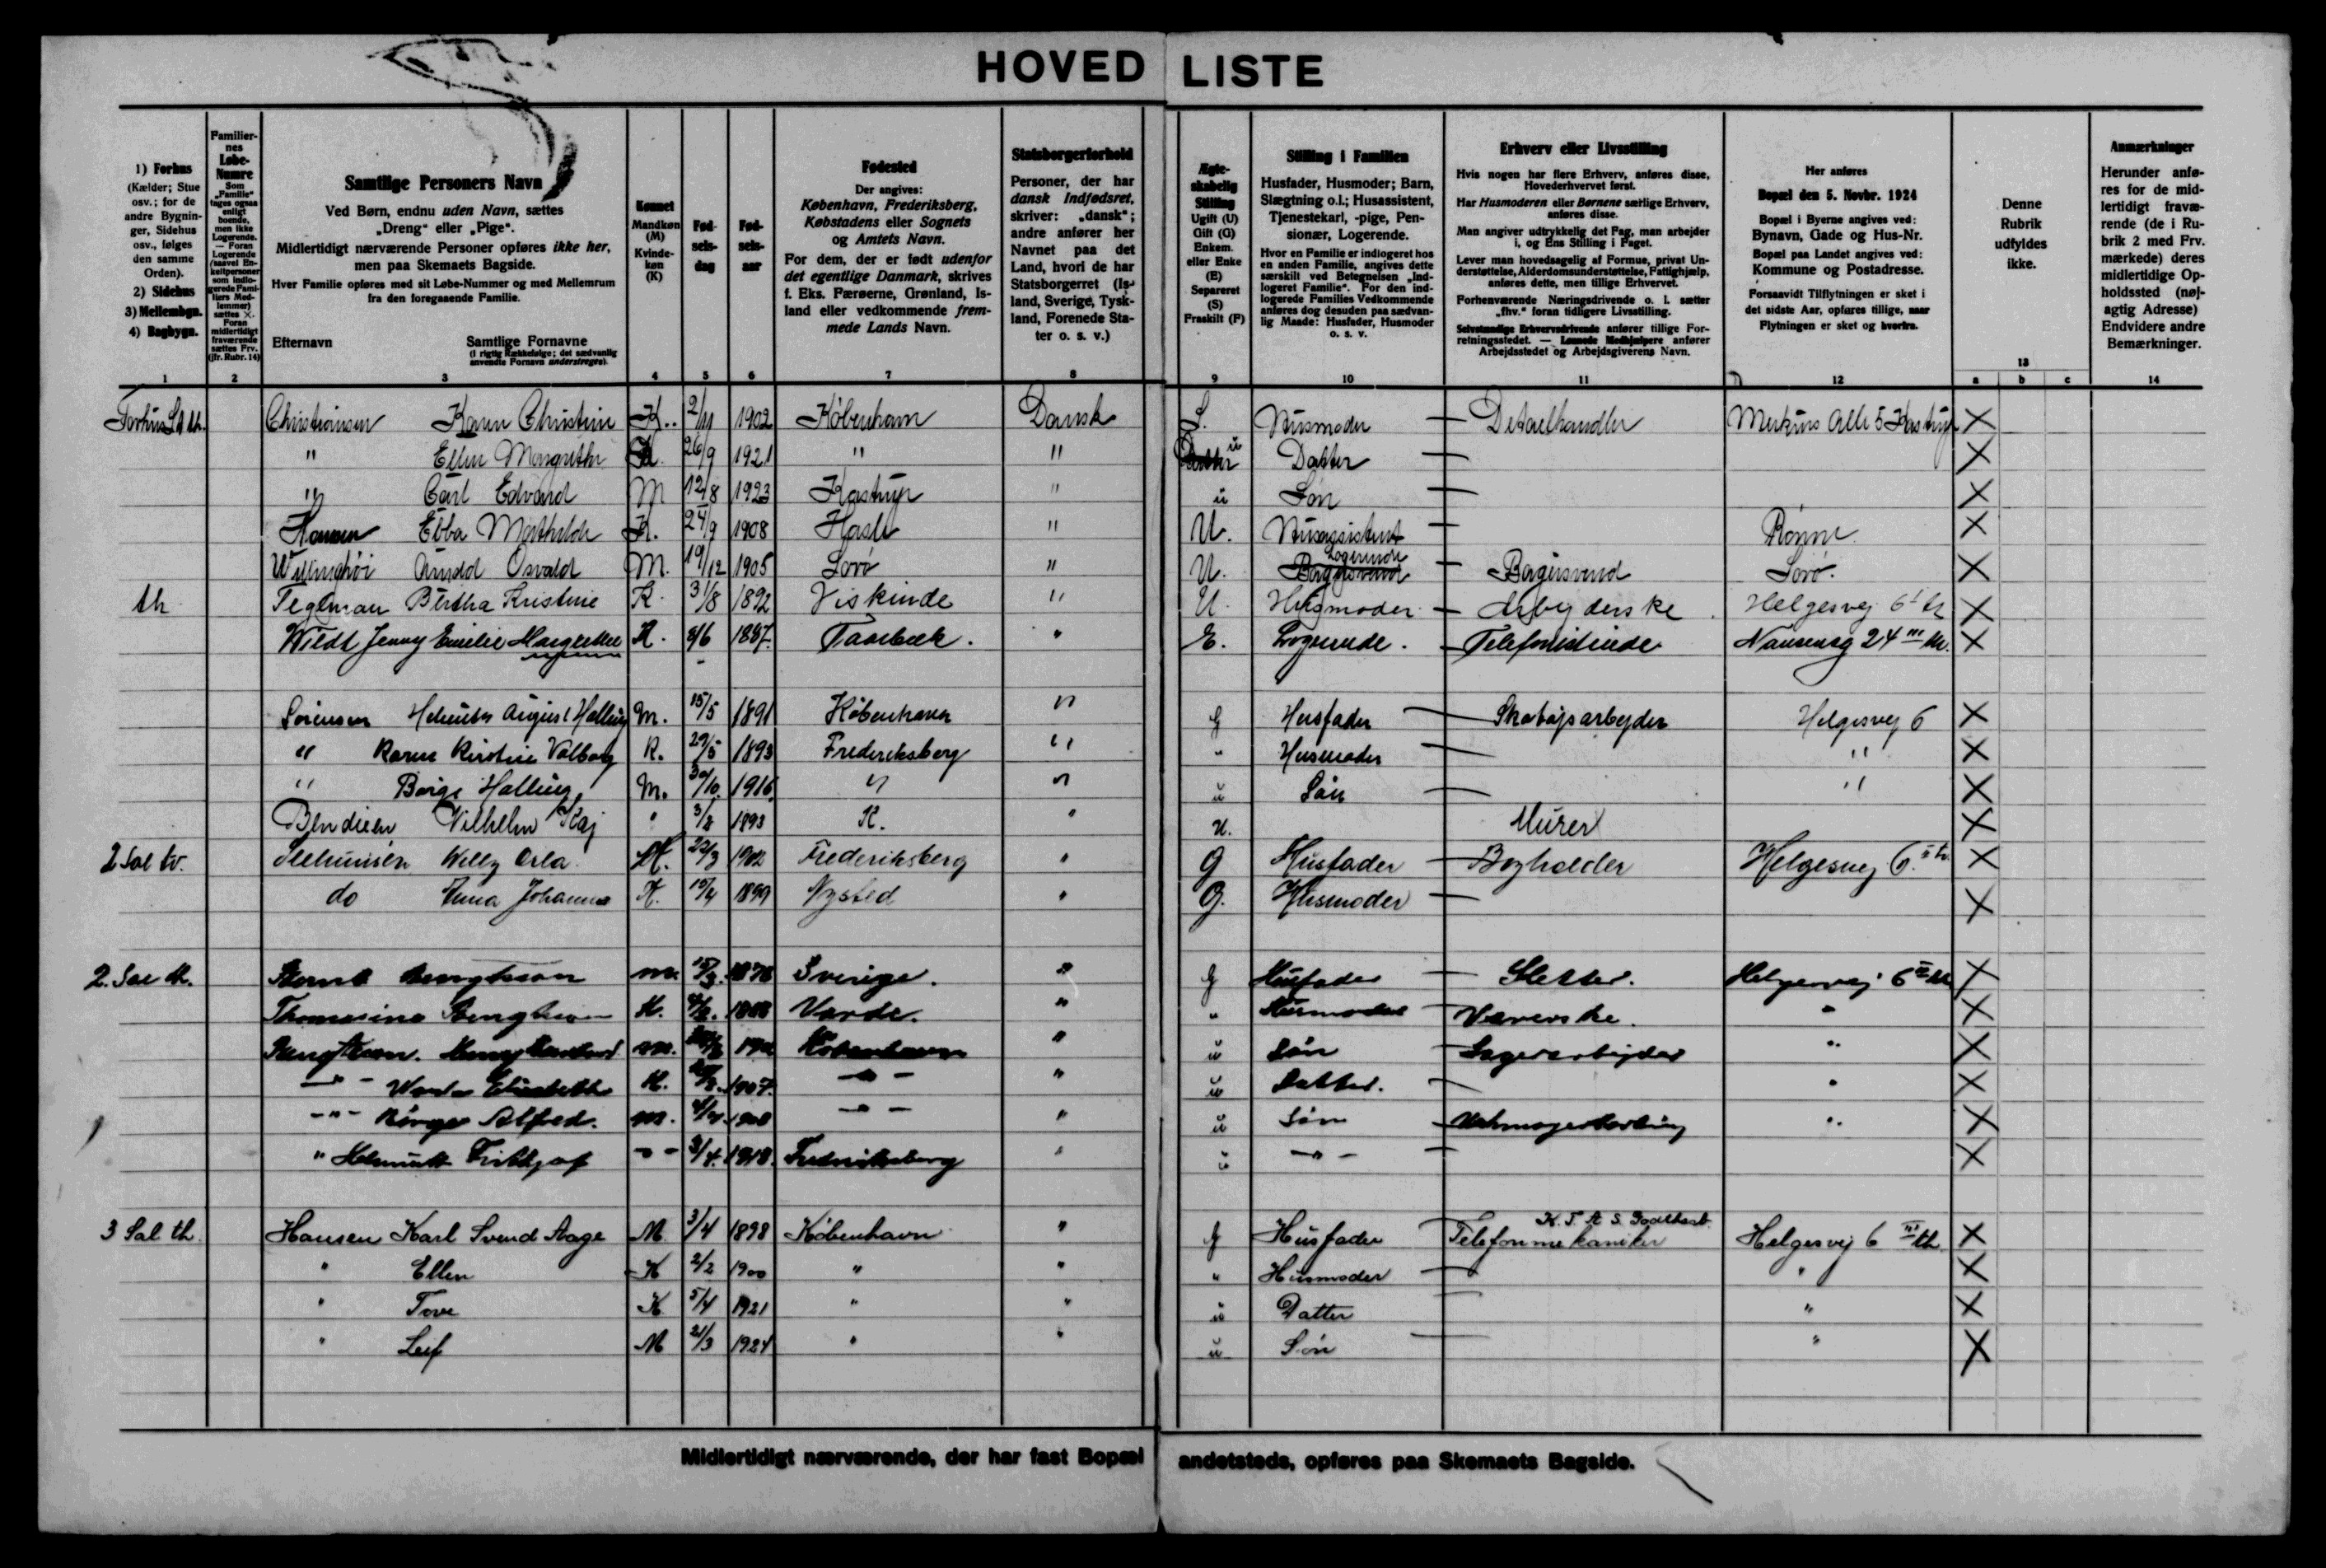 HOVED LISTE
1) Forhus (Kælder; Stue osv.; for de andre Bygninger, Sidehus osv., følges den samme Orden). 2) Sidehus 3) Mellembgn. 4) Bagbygn.
Familiernes Løbe-Numre Som „Familie“ tages ogsaa enligt boende, men ikke Logerende. — Foran Logerende (saavel Enkeltpersoner som indlogerede Familiers Medlemmer) sættes ×. Foran midlertidigt fraværende sættes Frv. (jfr. Rubr. 14)
Samtlige Personers Navn
Ved Børn, endnu uden Navn, sættes „Dreng“ eller „Pige“.
Midlertidigt nærværende Personer opføres ikke her, men paa Skemaets Bagside.
Hver Familie opføres med sit Løbe-Nummer og med Mellemrum fra den foregaaende Familie.
Efternavn Samtlige Fornavne (i rigtig Rækkefølge; det sædvanlig anvendte Fornavn understreges).
Kønnet Mandkøn (M) Kvindekøn (K)
Fødselsdag
Fødselsaar
Fødested
Der angives: København, Frederiksberg, Købstadens eller Sognets og Amtets Navn.
For dem, der er født udenfor det egentlige Danmark, skrives f. Eks. Færøerne, Grønland, Island eller vedkommende fremmede Lands Navn.
Statsborgerforhold
Personer, der har dansk Indfødsret, skriver: „dansk“; andre anfører her Navnet paa det Land, hvori de har Statsborgerret (Island, Sverige, Tyskland, Forenede Stater o. s. v.)
Ægteskabelig Stilling Ugift (U) Gift (G) Enkem. eller Enke (E) Separeret (S) Fraskilt (F)
Stilling i Familien
Husfader, Husmoder; Barn, Slægtning o.l.; Husassistent, Tjenestekarl, -pige, Pensionær, Logerende.
Hvor en Familie er indlogeret hos en anden Familie, angives dette særskilt ved Betegnelsen „Indlogeret Familie“. For den indlogerede Families Vedkommende anføres dog desuden paa sædvanlig Maade: Husfader, Husmoder o. s. v.
Erhverv eller Livsstilling
Hvis nogen har flere Erhverv, anføres disse, Hovederhvervet først.
Har Husmoderen eller Børnene særlige Erhverv, anføres disse.
Man angiver udtrykkelig det Fag, man arbejder i, og Ens Stilling i Faget.
Lever man hovedsagelig af Formue, privat Understøttelse, Alderdomsunderstøttelse, Fattighjælp, anføres dette, men tillige Erhvervet.
Forhenværende Næringsdrivende o. l. sætter „fhv.“ foran tidligere Livsstilling.
Selvstændige Erhvervsdrivende anfører tillige Forretningsstedet. — Lønnede Medhjælpere anfører Arbejdsstedet og Arbejdsgiverens Navn.
Her anføres Bopæl den 5. Novbr. 1924
Bopæl i Byerne angives ved: Bynavn, Gade og Hus-Nr.
Bopæl paa Landet angives ved: Kommune og Postadresse.
Forsaavidt Tilflytningen er sket i det sidste Aar, opføres tillige, naar Flytningen er sket og hvorfra.
Denne Rubrik udfyldes ikke.
Anmærkninger
Herunder anføres for de midlertidigt fraværende (de i Rubrik 2 med Frv. mærkede) deres midlertidige Opholdssted (nøjagtig Adresse) Endvidere andre Bemærkninger.
1 2 3 4 5 6 7 8 9 10 11 12 13 a b c 14
Forhus St th. Christiansen Karen Christine K. 2/11 1902 København Dansk S. Husmoder — Detailhandler Merkurs Alle 5 Kastrup X
" Ellen Margrethe K. 26/9 1921 " " u Datter — X
" Carl Edvard M 12/8 1923 Kastrup " u Søn — X
Hansen Ebba Mathilde K. 24/9 1908 Hasle " U. Husassistent — Rønne X
Arnold Osvald M. 19/12 1905 Sorø " U. Logerende — Bagersvend Sorø. X
th Teglman Bertha Kristine K. 31/8 1892 Viskinde " U. Husmoder — Arbejderske Helgesvej 6 I th X
Wildt Jenny Emilie Margrethe K. 8/6 1887. Taarbæk. " E. Logerende. — Telefonistinde Nansensg 24 III th. X
Sørensen August Halling M. 15/5 1891 København " g Husfader — Skotøjsarbejder Helgesvej 6 X
" Karen Kirstine Valborg K. 29/5 1893 Frederiksberg " " Husmoder — " X
" Børge Halling M. 30/10 1916 " " u Søn — " X
Bendixen Vilhelm Kaj " 3/8 1893 K. " U. Murer X
2 Sal tv. Willy Orla M. 22/3 1902 Frederiksberg " G Husfader — Bogholder Helgesvej 6. II tv. X
do Anna Johanne K. 15/4 1899 Nysted " G. Husmoder — X
2. Sal th. Bengtsson m. 1878 Sverige. " g Husfader — Helgesvej 6 II th X
Thomasine Bengtsson K. Varde. " " Husmoder Væverske. " X
Bengtsson. Henry m. København " u Søn — Lagerarbejder " X
— " — Elisabeth K. 1907. — " — " u Datter. — " X
— " — Børge Alfred. m. — " — " u Søn — " X
" Helmuth Frithjof — " — 3/4. 1918. Frederiksberg " u — " — — X
3 Sal th. Hansen Karl Svend Aage M. 3/4 1898 København " g Husfader — Telefonmekaniker K. T. A. S. Godthaab Helgesvej 6 III th X
" Ellen K 2/2 1900 " " " Husmoder — " X
" Tove K 5/4 1921 " " u Datter — " X
" Leif M 21/3 1924 " " u Søn — " X
Midlertidigt nærværende, der har fast Bopæl andetsteds, opføres paa Skemaets Bagside.